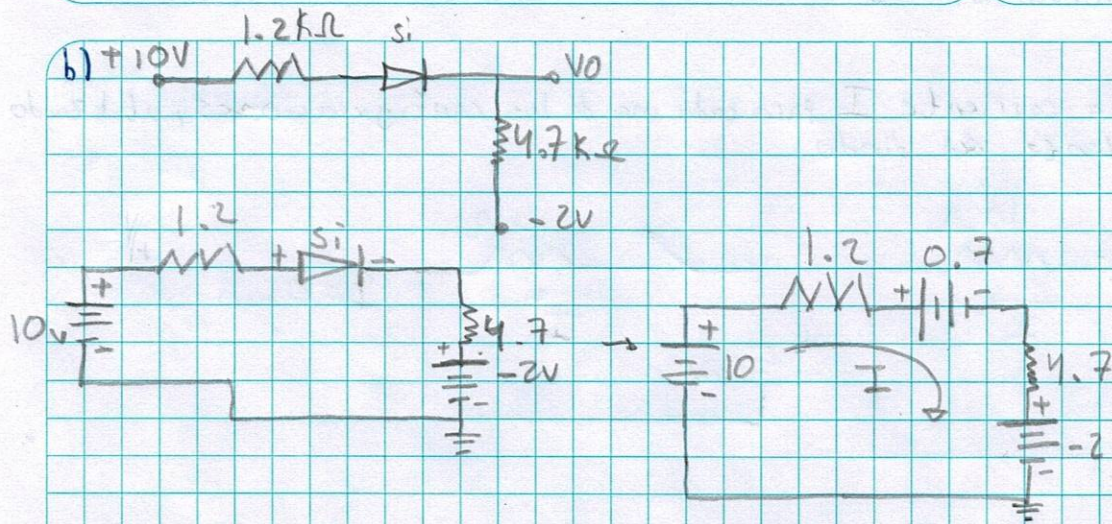 b) +10V 1.2KΩ si VO
4.7KΩ
-2V
1.2 + Si -
+
10v
-
4.7
+
-2V
-
→
1.2 + 0.7 -
+
10
-
I
4.7
+
-2
-